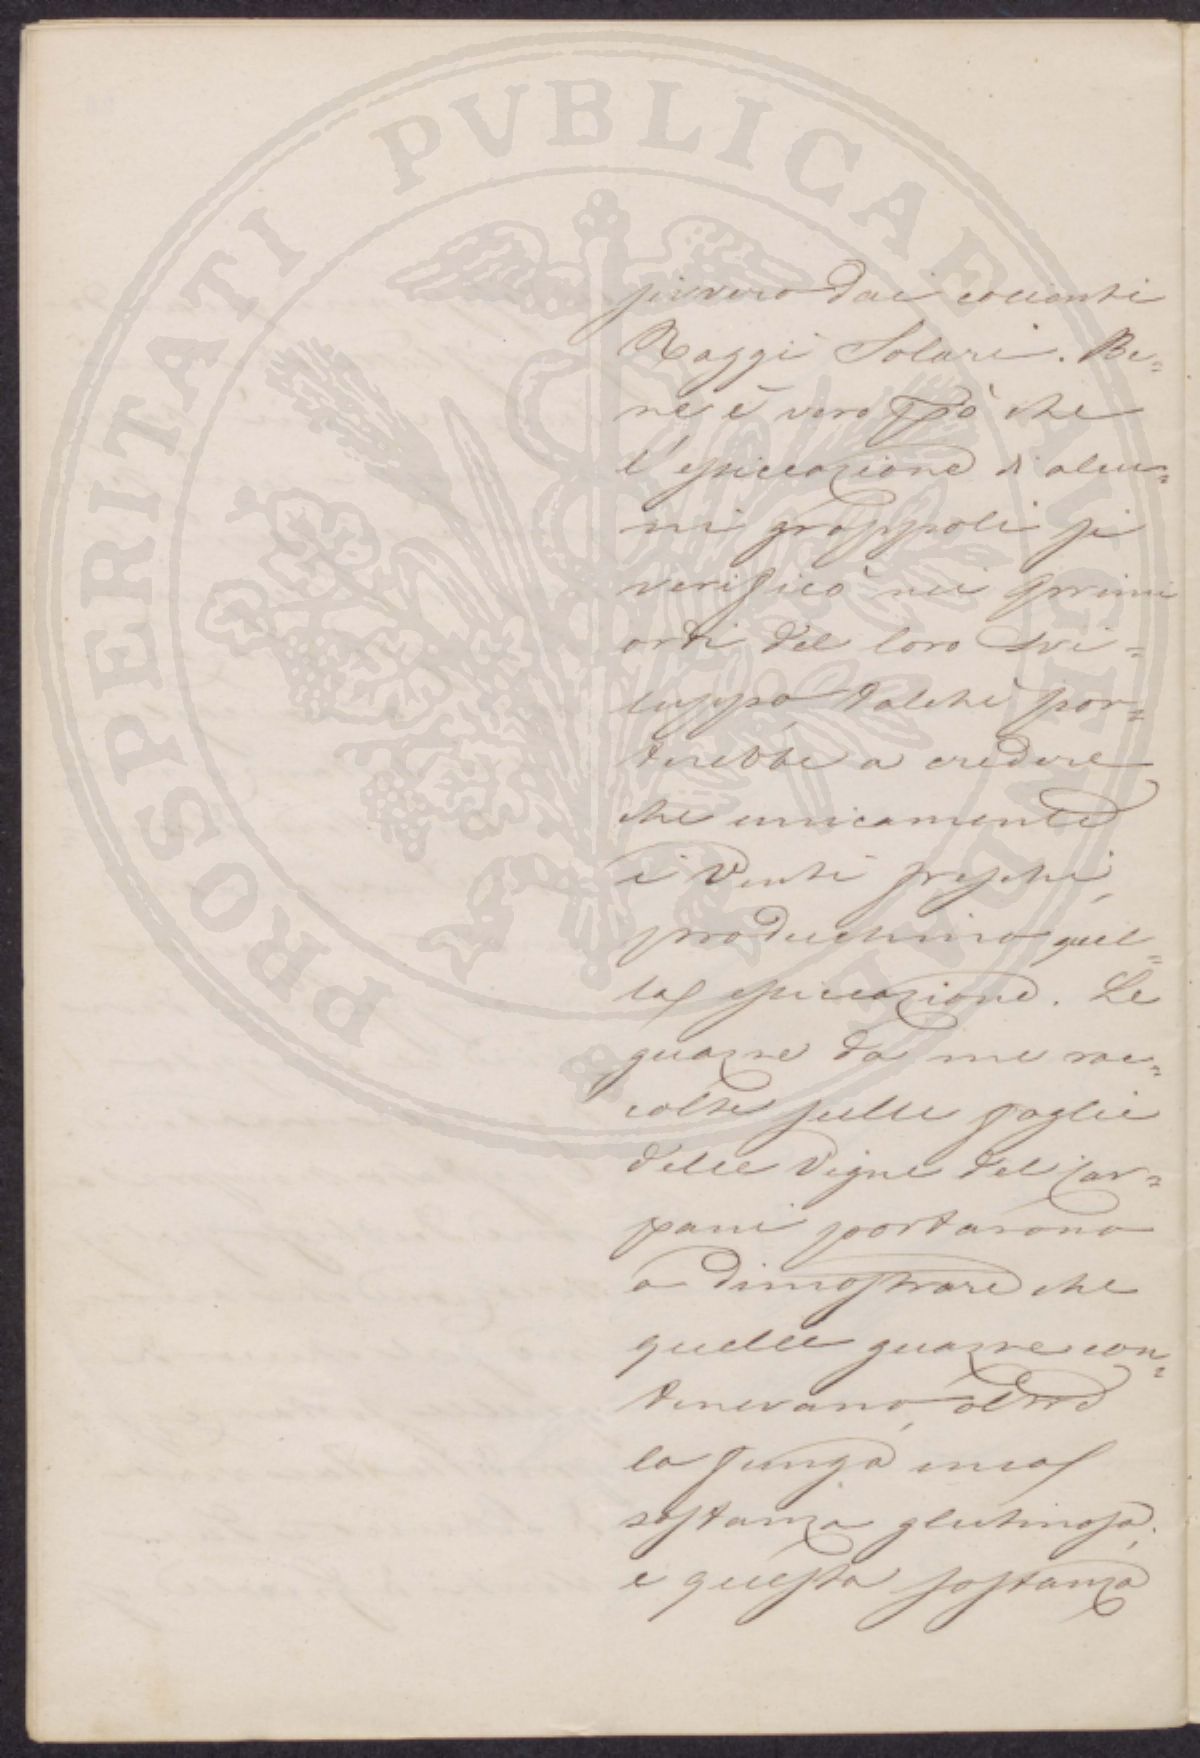 PROSPERITATI PVBLICAE AVGENDAE
sivvero dai cocenti
Raggi Solari. Be=
ne è vero ppò che
l'essiccazione di alcu=
ni grappoli si
verificò nei primi
ordi del loro svi=
luppo talchè por=
terebbe a credere
che unicamente
i Venti freschi,
producessino quel=
la essiccazione. Le
guazze da me rac=
colte sulle foglie
delle Vigne del Car=
pani portarono
a dimostrare che
quelle guazze con=
tenevano, oltre
la funga una
sostanza glutinosa,
e questa sostanza